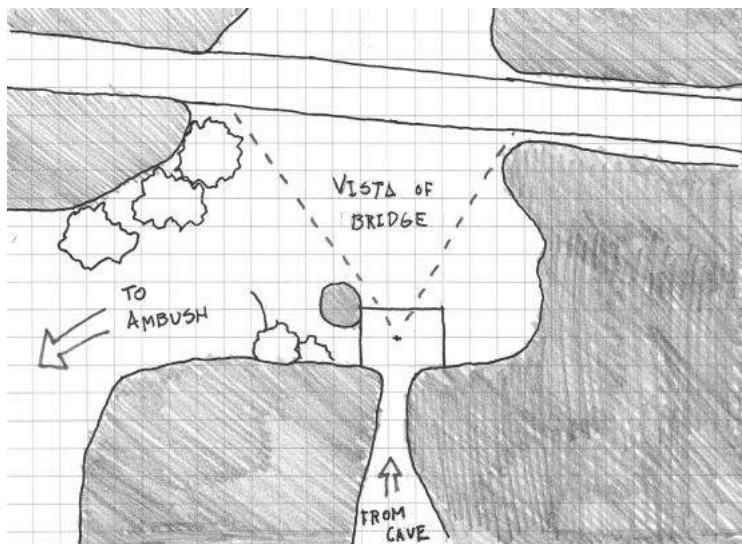 VISTA OF
BRIDGE
TO
AMBUSH
FROM
CAVE